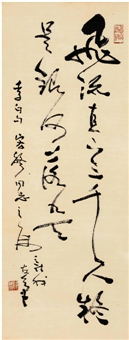 飛流直下三千尺疑
是銀河落九天
李白 同志